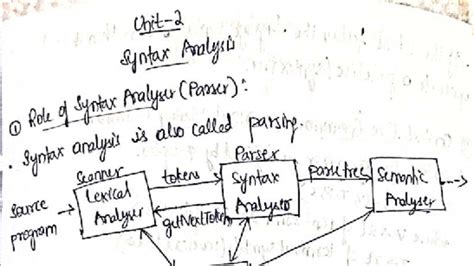 Unit-2
Syntax Analysis
① Role of Syntax Analyser (Parser):
• Syntax analysis is also called parsing.
Scanner
Parser
source program
Lexical Analyser
tokens
getNextToken
Syntax Analyser
parse tree
Semantic Analyser